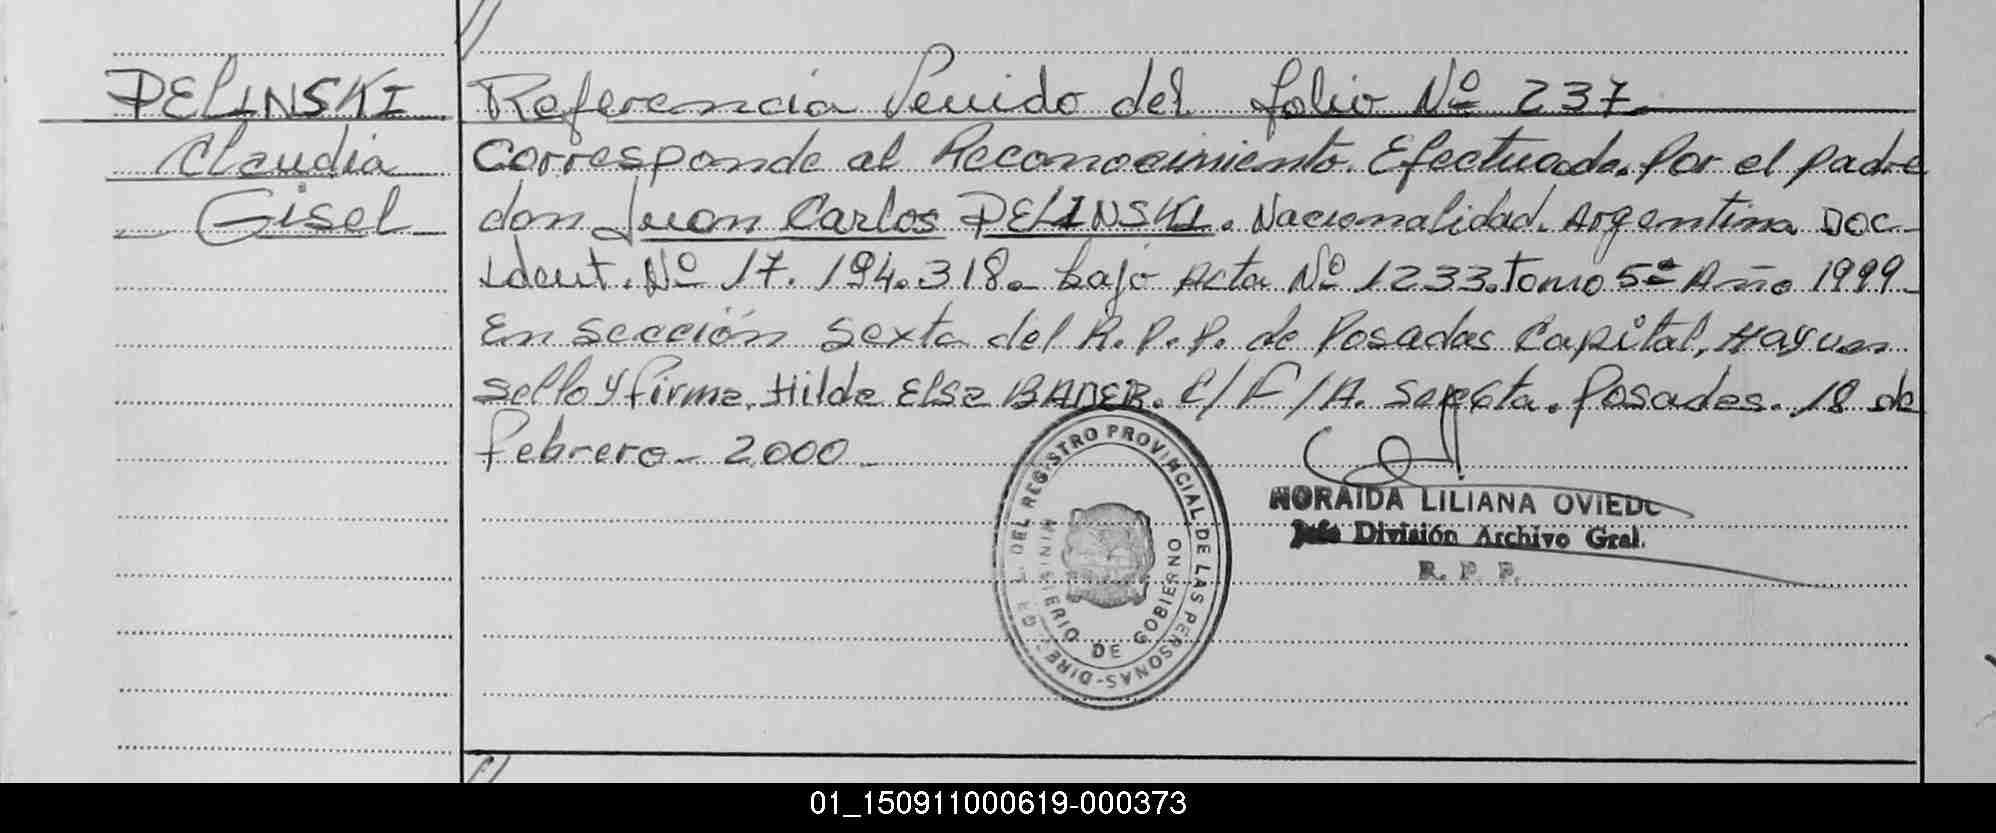 PELINSKI
Claudia
Gisel
Referencia Venido del folio Nº 237
Corresponde al Reconocimiento. Efectuado. Por el padre
don Juan Carlos PELINSKI. Nacionalidad. Argentina DOC-
Ident. Nº 17.194.318. bajo Acta Nº 1233. Tomo 5º Año 1999
En Sección Sexta del R.P.P. de Posadas Capital, Hay un
sello y firma. Hilda Elsa BADER. E/F/A. Sexta. Posadas. 18 de
Febrero - 2000 -
DEL REGISTRO PROVINCIAL DE LAS PERSONAS-
MINISTERIO DE GOBIERNO
NORAIDA LILIANA OVIEDO
Jefe División Archivo Gral.
R. P. P.
01_150911000619-000373